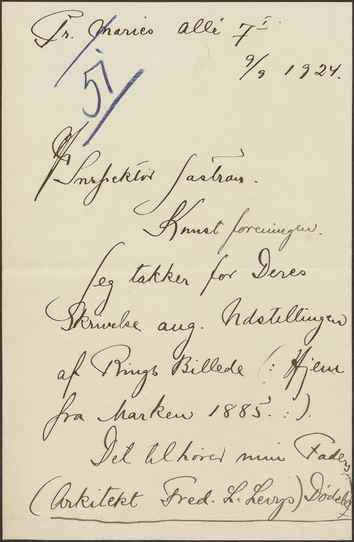 Pr. Maries Allé 7 I
9/9 1924.
57
Hr Inspektør Sastrau.
Kunstforeningen.
Jeg takker for Deres
Skrivelse ang. Udstillingen
af Rings Billede (: Hjem
fra Marken 1885. :).
Det tilhører min Faders
(Arkitekt Fred. L. Levys) Dødsbo